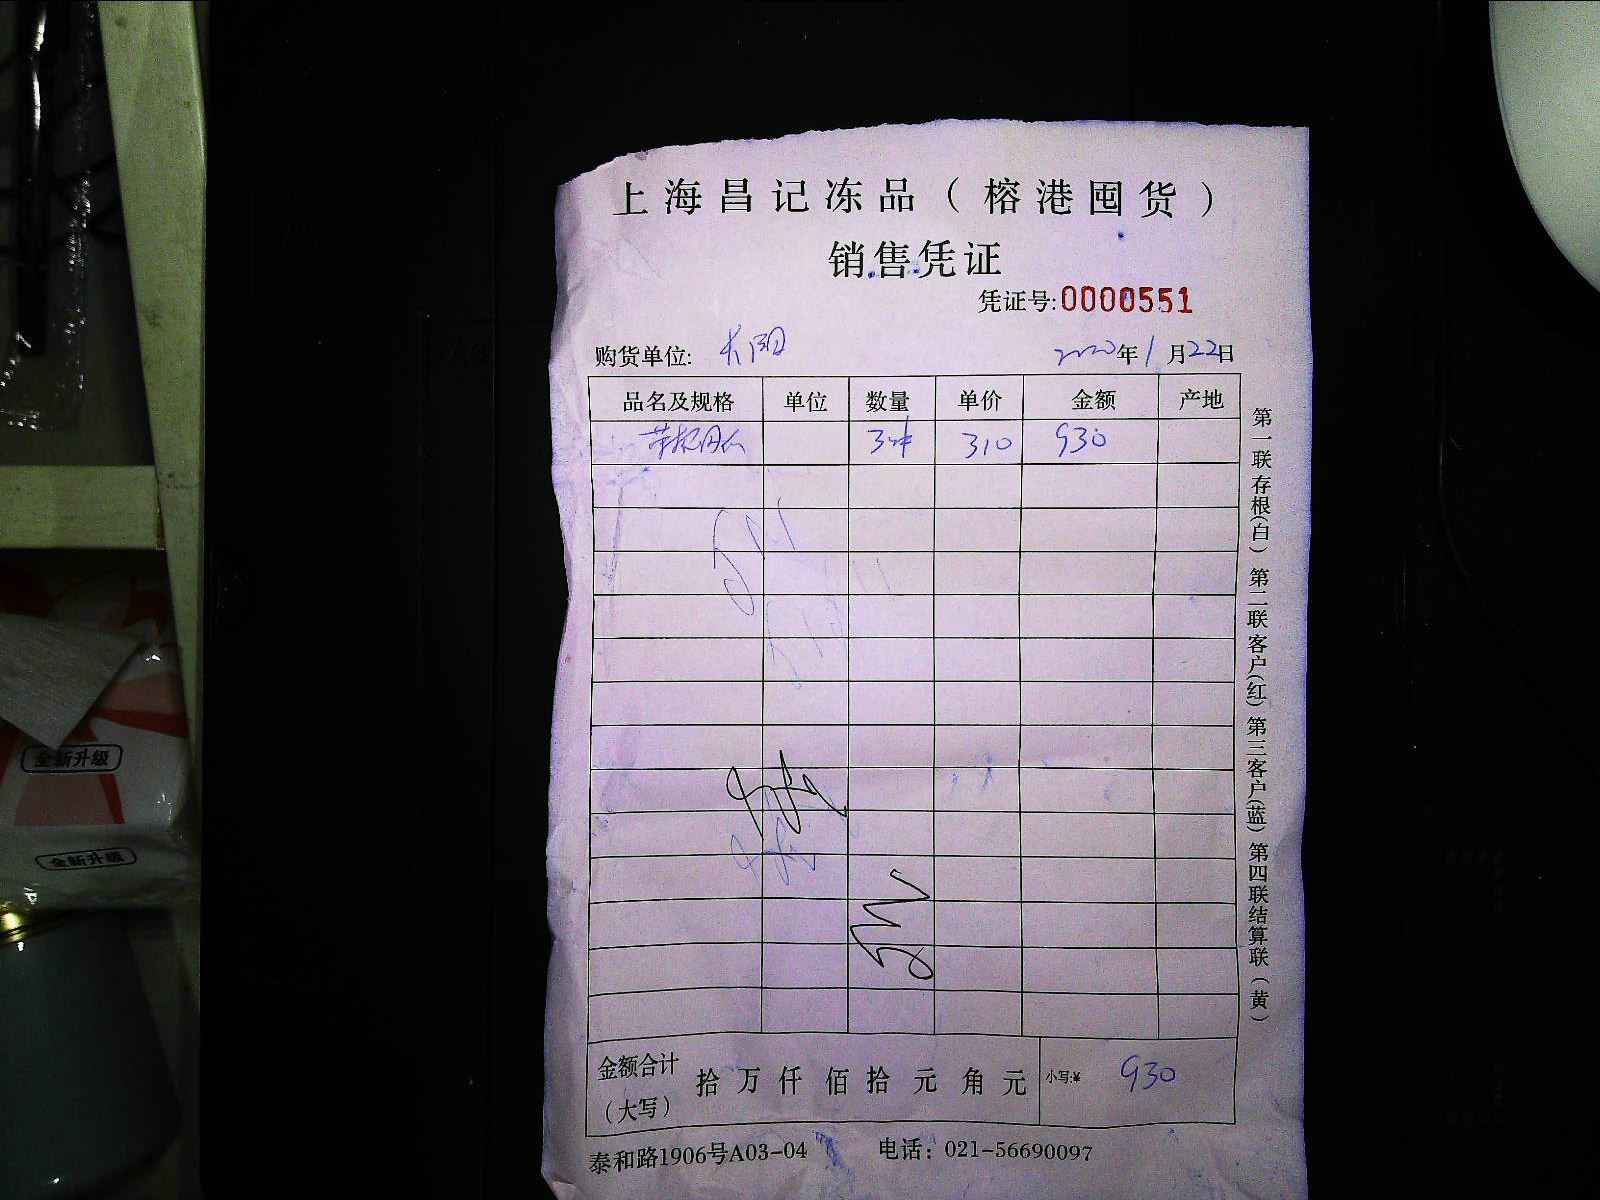 上海昌记冻品（榕港囤货）
销售凭证
凭证号:0000551
购货单位: 长阳 2020年1月22日
品名及规格 单位 数量 单价 金额 产地
3件 310 930
金额合计（大写） 拾万仟佰拾元角元 小写:¥ 930
泰和路1906号A03-04 电话：021-56690097
第一联存根(白) 第二联客户(红) 第三客户(蓝) 第四联结算联（黄）
全新升级
全新升级